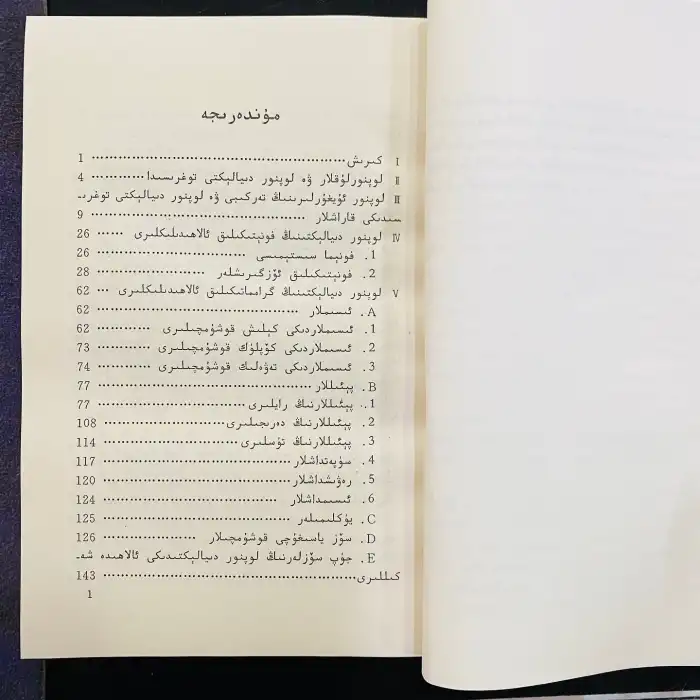 مۇندەرىجە
I كىرىش ························································ 1
II لوپنورلۇقلار ۋە لوپنور دىيالېكتى توغرىسىدا ············ 4
III لوپنور ئۇيغۇرلىرىنىڭ تەركىبى ۋە لوپنور دىيالېكتى توغرىـ
سىدىكى قاراشلار ················································ 9
IV لوپنور دىيالېكتىنىڭ فونېتىكىلىق ئالاھىدىلىكلىرى ······ 26
1. فونېما سىستېمىسى ································ 26
2. فونېتىكىلىق ئۆزگىرىشلەر ························ 28
V لوپنور دىيالېكتىنىڭ گرامماتىكىلىق ئالاھىدىلىكلىرى ··· 62
A. ئىسىملار ·········································· 62
1. ئىسىملاردىكى كېلىش قوشۇمچىلىرى ············ 62
2. ئىسىملاردىكى كۆپلۈك قوشۇمچىلىرى ············ 73
3. ئىسىملاردىكى تەۋەلىك قوشۇمچىلىرى ············ 74
B. پېئىللار ·············································· 77
1. پېئىللارنىڭ رايلىرى ································ 77
2. پېئىللارنىڭ دەرىجىلىرى ·························· 108
3. پېئىللارنىڭ تۈسلىرى ······························ 114
4. سۈپەتداشلار ········································ 117
5. رەۋىشداشلار ········································ 120
6. ئىسىمداشلار ········································ 124
C. يۈكلىمىلەر ············································ 125
D. سۆز ياسىغۇچى قوشۇمچىلار ······················ 126
E. جۈپ سۆزلەرنىڭ لوپنور دىيالېكتىدىكى ئالاھىدە شەـ
كىللىرى ························································ 143
1